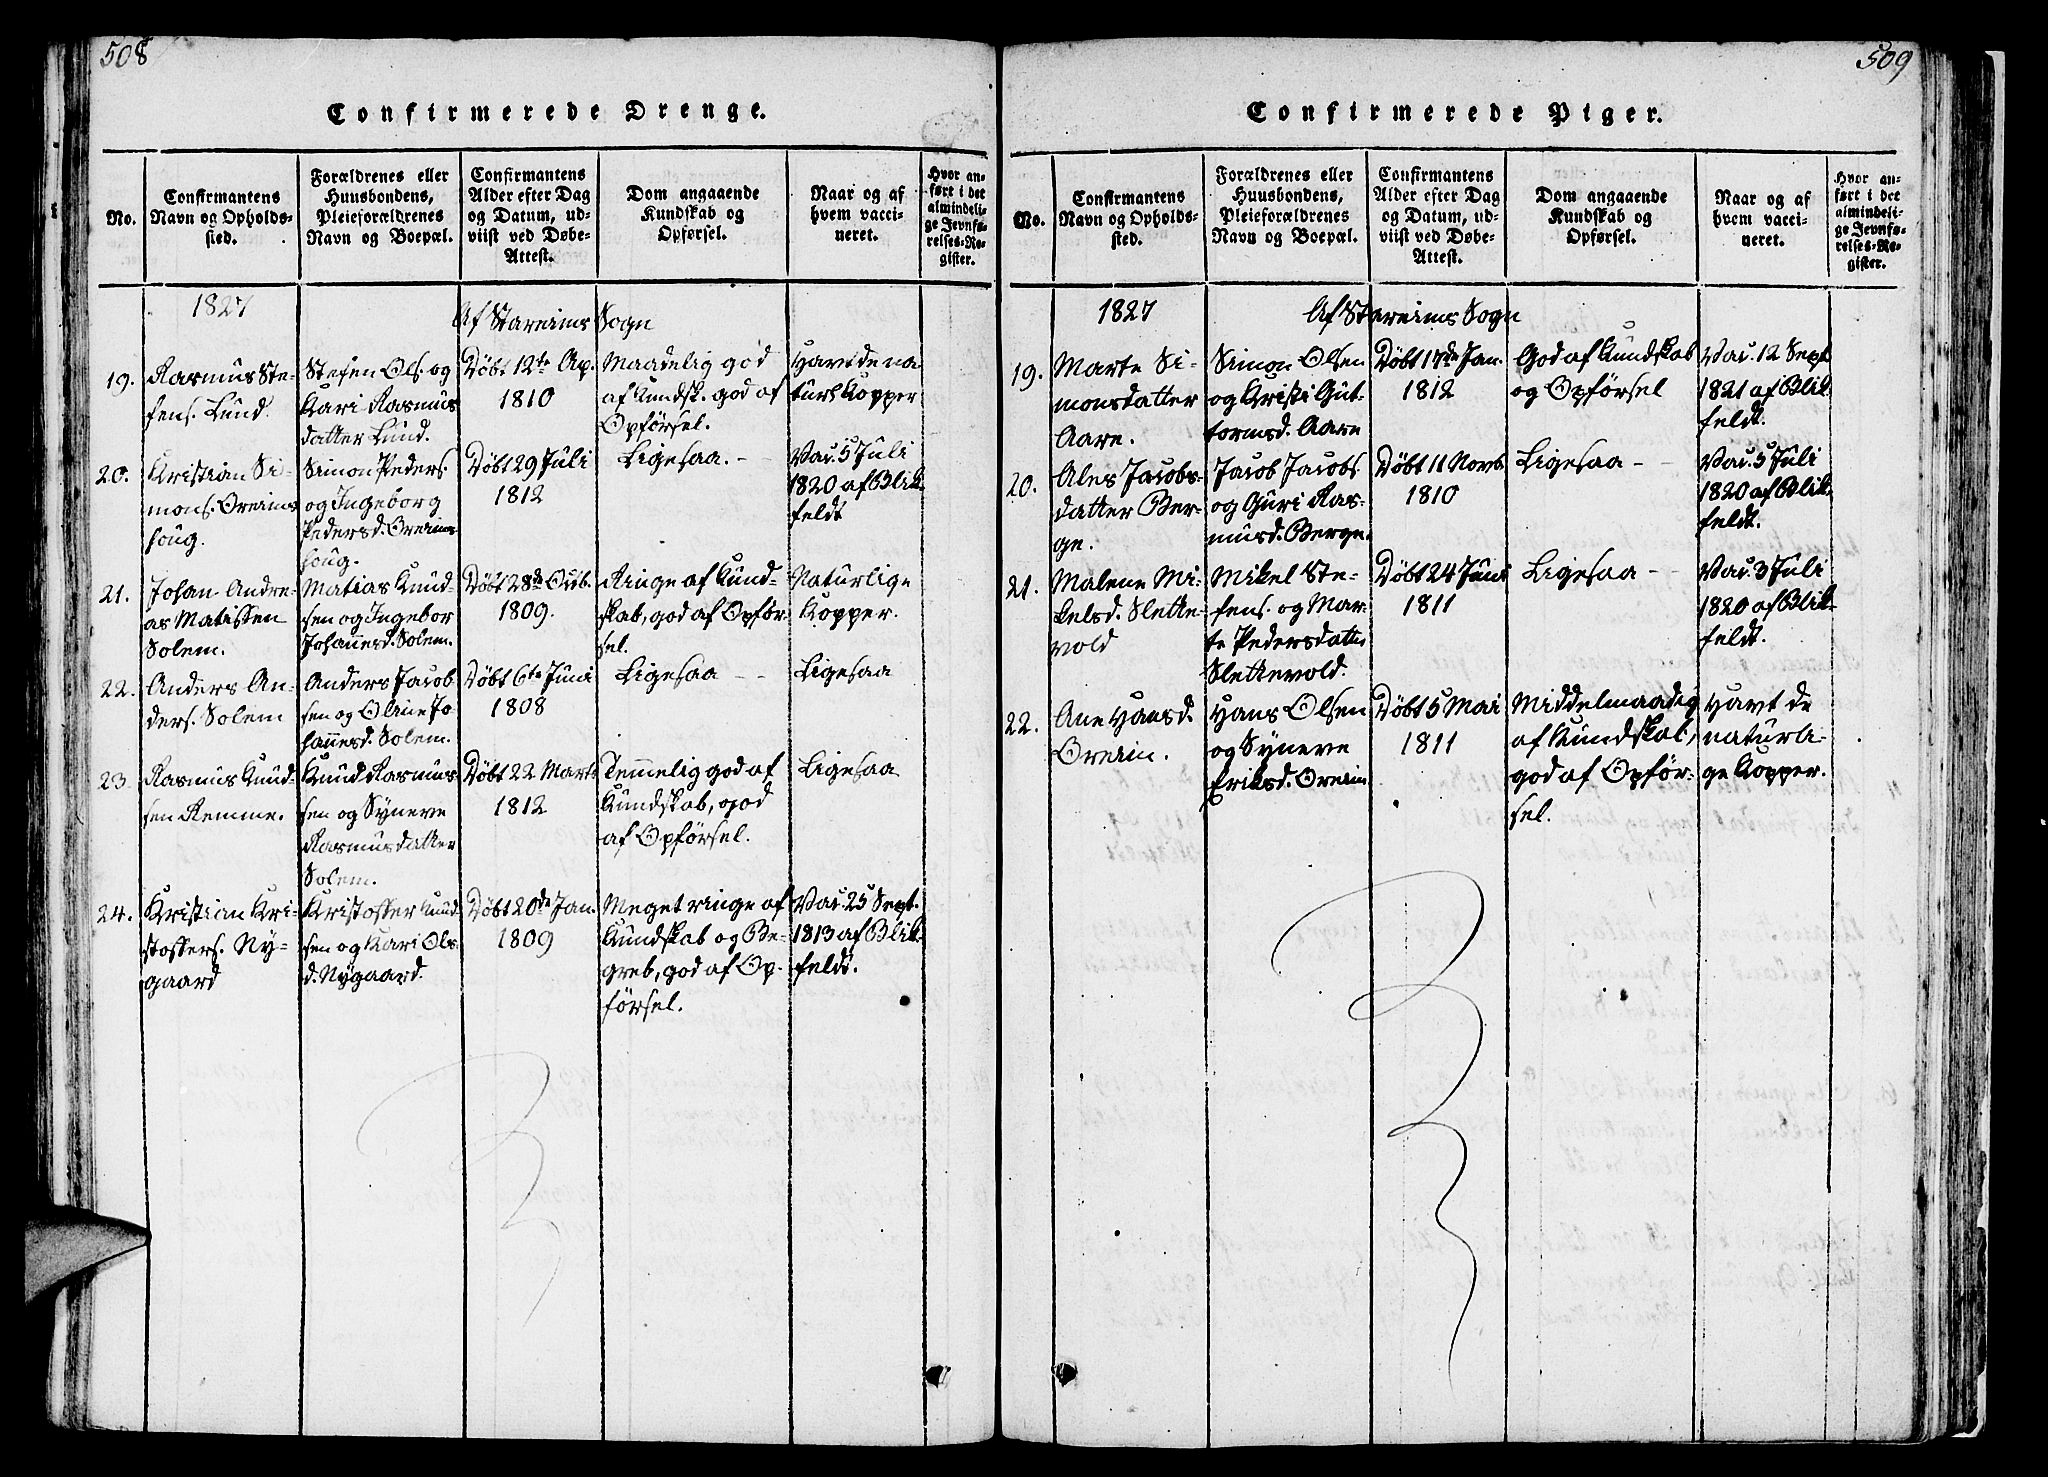 508
Confirmerede Drenge.
No.
Confirmantens
Navn og Opholds-
sted.
Forældrenes eller
Huusbondens,
Pleieforældrenes
Navn og Boepæl.
Confirmantens
Alder efter Dag
og Datum, ud-
viist ved Døbe-
Attest.
Dom angaaende
Kundskab og
Opførsel.
Naar og af
hvem vacci-
neret.
Hvor an-
ført i det
almindeli-
ge Jevnfø-
relses-Re-
gister.
1827
Af Stareims Sogn
19.
Rasmus Ste-
fens. Lund.
Stefen Ols. og
Kari Rasmus
datter Lund.
Døbt 12te Ap.
1810
Maadelig god
af Kundsk. god af
Opførsel.
Havt de na
turl Kopper
20.
Kristian Si-
mons. Oreims
houg.
Simon Peders.
og Ingeborg
Pedersd. Oreims
houg.
Døbt 29 Juli
1812
Ligesaa. -
Vac. 5 Juli
1820 af Blik
feldt
21.
Johan Andre-
as Matissen
Solem.
Matias Knud-
sen og Ingebor
Johannesd. Solem.
Døbt 28de Octb.
1809.
Ringe af Kund-
skab, god af Opfør-
sel.
Naturlige
Kopper.
22.
Anders An-
ders. Solem
Anders Jacob
sen og Oline Jo
hannesd. Solem.
Døbt 6te Juni
1808
Ligesaa - -
Ligesaa
23.
Rasmus Knud-
sen Remme.
Knud Rasmus
sen og Syneve
Rasmusdatter
Solem.
Døbt 22 Marts
1812
Temmelig god af
Kundskab, god
af Opførsel.
Ligesaa
24.
Kristian Kri-
stoffers. Ny-
gaard
Kristoffer Knud
sen og Kari Ols
d. Nygaard.
Døbt 20de Jan.
1809
Meget ringe af
Kundskab og Be-
greb, god af Op-
førsel.
Vac. 25 Sept.
1813 af Blik-
feldt.
509
Confirmerede Piger.
No.
Confirmantens
Navn og Opholds-
sted.
Forældrenes eller
Huusbondens,
Pleieforældrenes
Navn og Boepæl.
Confirmantens
Alder efter Dag
og Datum, ud-
viist ved Døbe-
Attest.
Dom angaaende
Kundskab og
Opførsel.
Naar og af
hvem vacci-
neret.
Hvor an-
ført i det
almindeli-
ge Jevnfø-
relses-Re-
gister.
1827
Af Stareims Sogn
19.
Marte Si-
monsdatter
Aare.
Simon Olsen
og Kristi Gut-
tormsd. Aare
Døbt 17de Jan.
1812
God af Kundskab
og Opførsel
Vac. 12 Sept
1821 af Blik
feldt.
20.
Ales Jacobs-
datter Ber-
ge.
Jacob Jacobs
og Guri Ras-
musd. Berge.
Døbt 11 Novb.
1810
Ligesaa - -
Vac. 5 Juli
1820 af Blik
feldt.
21.
Malene Mi-
kelsd. Slette-
vold
Mikel Ste-
fens. og Mar-
te Pedersdatter
Slettevold.
Døbt 24 Juni
1811
Ligesaa - -
Vac. 3 Juli
1820 af Blik
feldt.
22.
Ane Hansd.
Oreim.
Hans Olsen
og Syneve
Eriksd. Oreim
Døbt 5 Mai
1811
Middelmaadig
af Kundskab,
god af Opfør-
sel.
Havt de
naturli-
ge Kopper.